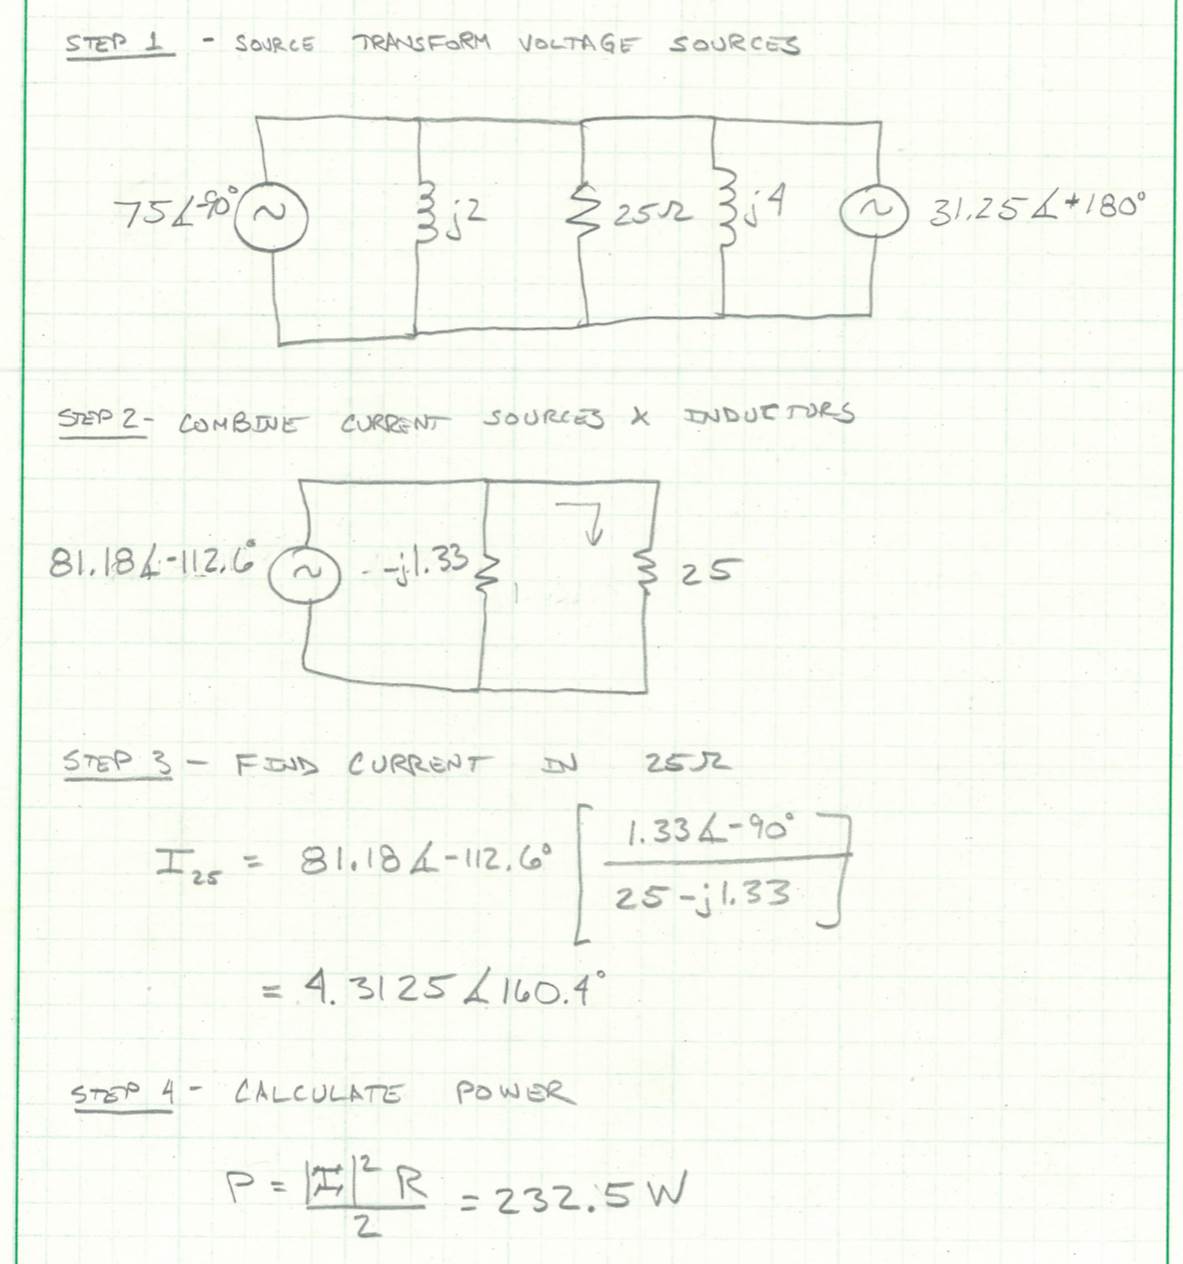 STEP 1 - SOURCE TRANSFORM VOLTAGE SOURCES
75∠-90° j2 25Ω j4 31.25∠+180°
STEP 2- COMBINE CURRENT SOURCES & INDUCTORS
81.18∠-112.6° -j1.33 25
STEP 3 - FIND CURRENT IN 25Ω
I25 = 81.18∠-112.6° [1.33∠-90° / 25-j1.33]
= 4.3125∠160.4°
STEP 4 - CALCULATE POWER
P = |I|² R / 2 = 232.5 W